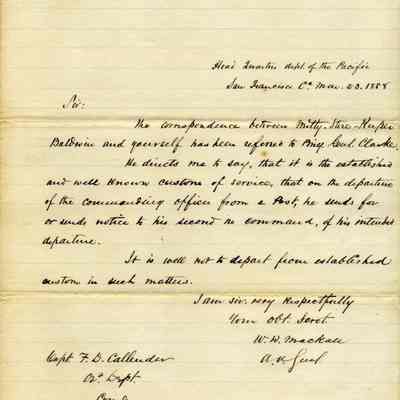 Head Quarters dept. of the Pacific
San Francisco Ca. Mar. 23. 1858
Sir:
The correspondence between Mility. Store-Keeper
Baldwin and yourself has been referred to Brig. Genl. Clarke.
He directs me to say, that it is the established
and well known custom of service, that on the departure
of the commanding officer from a Post, he sends for
or sends notice to his second in command, of his intended
departure.
It is well not to depart from established
custom in such matters.
I am sir. very respectfully
Your Obt. Servt.
W. W. Mackall
A. A. Genl
Capt F. D. Callender
Od. Dept.